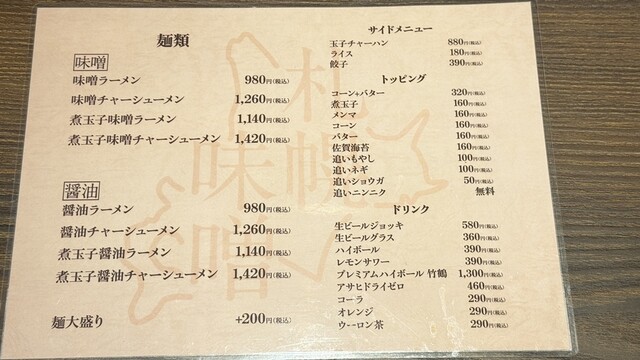 麺類
味噌
味噌ラーメン 980円(税込)
味噌チャーシューメン 1,260円(税込)
煮玉子味噌ラーメン 1,140円(税込)
煮玉子味噌チャーシューメン 1,420円(税込)
醤油
醤油ラーメン 980円(税込)
醤油チャーシューメン 1,260円(税込)
煮玉子醤油ラーメン 1,140円(税込)
煮玉子醤油チャーシューメン 1,420円(税込)
麺大盛り +200円(税込)
サイドメニュー
玉子チャーハン 880円(税込)
ライス 180円(税込)
餃子 390円(税込)
トッピング
コーン&バター 320円(税込)
煮玉子 160円(税込)
メンマ 160円(税込)
コーン 160円(税込)
バター 160円(税込)
佐賀海苔 160円(税込)
追いもやし 100円(税込)
追いネギ 100円(税込)
追いショウガ 50円(税込)
追いニンニク 無料
ドリンク
生ビールジョッキ 580円(税込)
生ビールグラス 360円(税込)
ハイボール 390円(税込)
レモンサワー 390円(税込)
プレミアムハイボール 竹鶴 1,300円(税込)
アサヒドライゼロ 460円(税込)
コーラ 290円(税込)
オレンジ 290円(税込)
ウーロン茶 290円(税込)
札幌
味噌